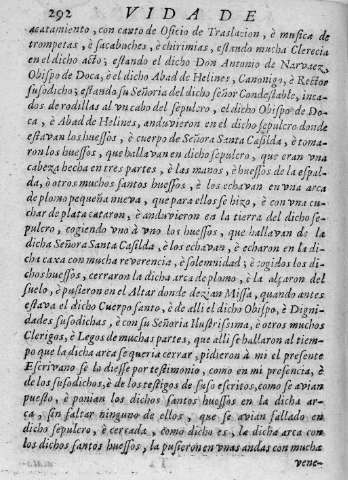 292 VIDA DE
acatamiento, con canto de Oficio de Traslacion, è musica de
trompetas, è sacabuches, è chirimias, estando mucha Clerecia
en el dicho acto; estando el dicho Don Antonio de Narvaez,
Obispo de Doca, è el dicho Abad de Helines, Canonigo, è Retor
susodicho; estando su Señoria del dicho señor Condestable, inca-
dos de rodillas al vn cabo del sepulcro, el dicho Obispo de Do-
ca, è Abad de Helines, anduvieron en el dicho sepulcro donde
estavan los huessos, è cuerpo de Señora Santa Casilda, è toma-
ron los huessos, que hallavan en dicho sepulcro, que eran vna
cabeza hecha en tres partes, è las manos, è huessos de la espal-
da, è otros muchos santos huessos, è los echavan en vna arca
de plomo pequeña nueva, que para ellos se hizo, è con vna cu-
char de plata cataron, è anduvieron en la tierra del dicho se-
pulcro, cogiendo vno à vno los huessos, que hallavan de la
dicha Señora Santa Casilda, è los echavan, è echaron en la di-
cha caxa con mucha reverencia, è solemnidad; è cogidos los di-
chos huessos, cerraron la dicha arca de plomo, è la alçaron del
suelo, è pusieron en el Altar donde dezian Missa, quando antes
estava el dicho Cuerpo santo, è de alli el dicho Obispo, è Digni-
dades susodichas, è con su Señoria Ilustrissima, è otros muchos
Clerigos, è Legos de muchas partes, que alli se hallaron al tiem-
po que la dicha arca se queria cerrar, pidieron à mi el presente
Escrivano se lo diesse por testimonio, como en mi presencia, è
de los susodichos, è de los testigos de suso escritos, como se avian
puesto, è ponian los dichos santos huessos en la dicha ar-
ca, sin faltar ninguno de ellos, que se avian fallado en
dicho sepulcro, è cerrada, como dicho es, la dicha arca con
los dichos santos huessos, la pusieron en vnas andas con mucha
vene-